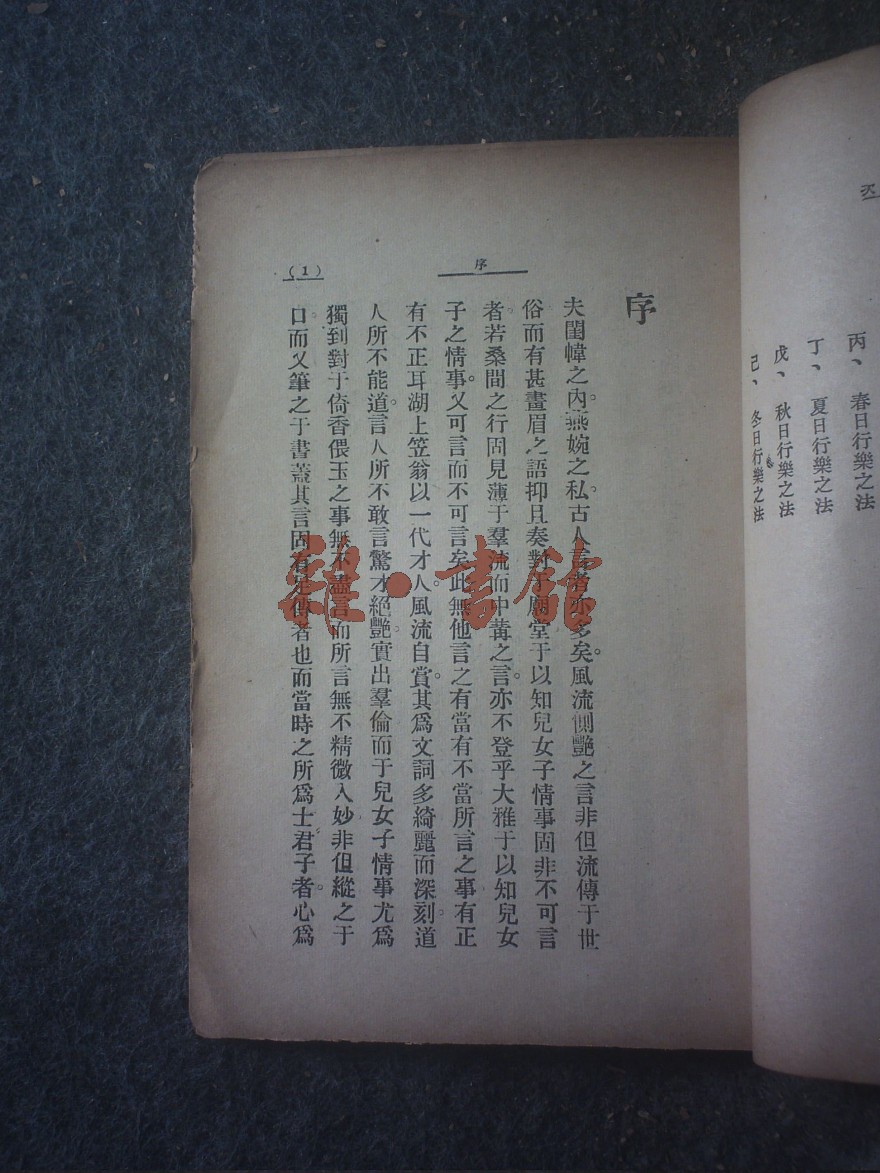 丙、春日行樂之法
丁、夏日行樂之法
戊、秋日行樂之法
己、冬日行樂之法
序
(1)
序
夫閨幃之內。燕婉之私。古人言者亦多矣。風流惻艷之言非但流傳于世
俗而有甚畫眉之語抑且奏對于廟堂于以知兒女子情事固非不可言
者。若桑間之行固見薄于羣流而中冓之言。亦不登乎大雅于以知兒女
子之情事。又可言而不可言矣此無他言之有當有不當所言之事有正
有不正耳湖上笠翁以一代才人。風流自賞。其爲文詞多綺麗而深刻。道
人所不能道。言人所不敢言驚才絕艷。實出羣倫而于兒女子情事尤爲
獨到對于倚香偎玉之事無不盡言而所言無不精微入妙非但縱之于
口。而又筆之于書蓋其言固有足傳者也而當時之所爲士君子者。心爲
雜·書館